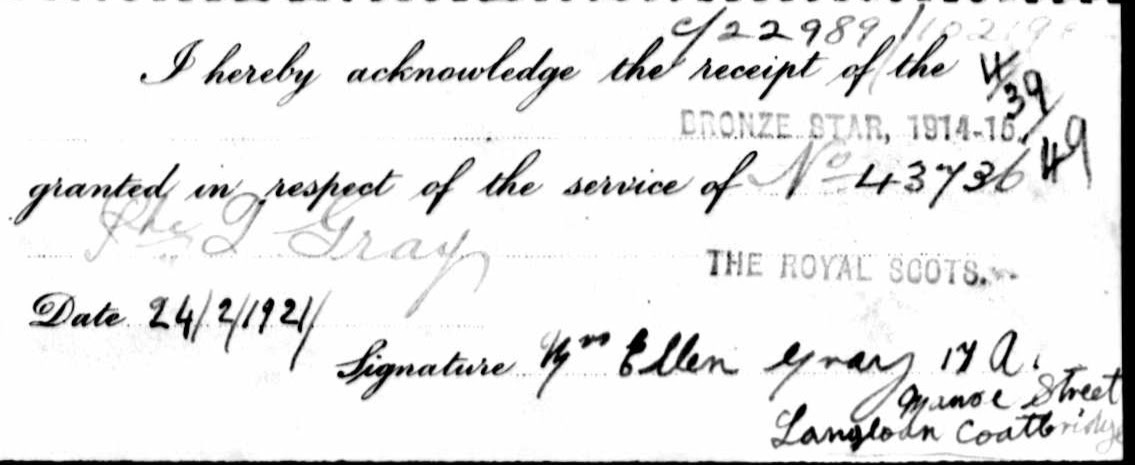 C/22989/10219
I hereby acknowledge the receipt of the 4/39/49
BRONZE STAR, 1914-15.
granted in respect of the service of No 43736
Pte T Gray
THE ROYAL SCOTS.
Date 24/2/1921
Signature Mrs Ellen Gray 17 A.
Manse Street
Langloan Coatbridge